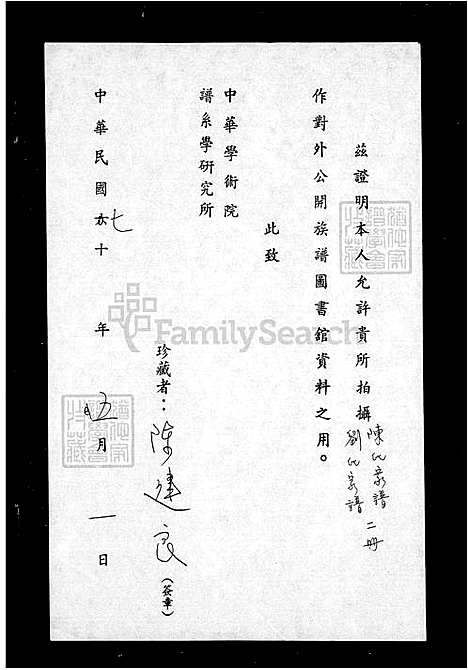 茲證明本人允許貴所拍攝陳氏家譜
劉氏家譜二冊
作對外公開族譜圖書館資料之用。
此致
中華學術院
譜系學研究所
珍藏者：陳建良(簽章)
中華民國七十年伍月一日
FamilySearch